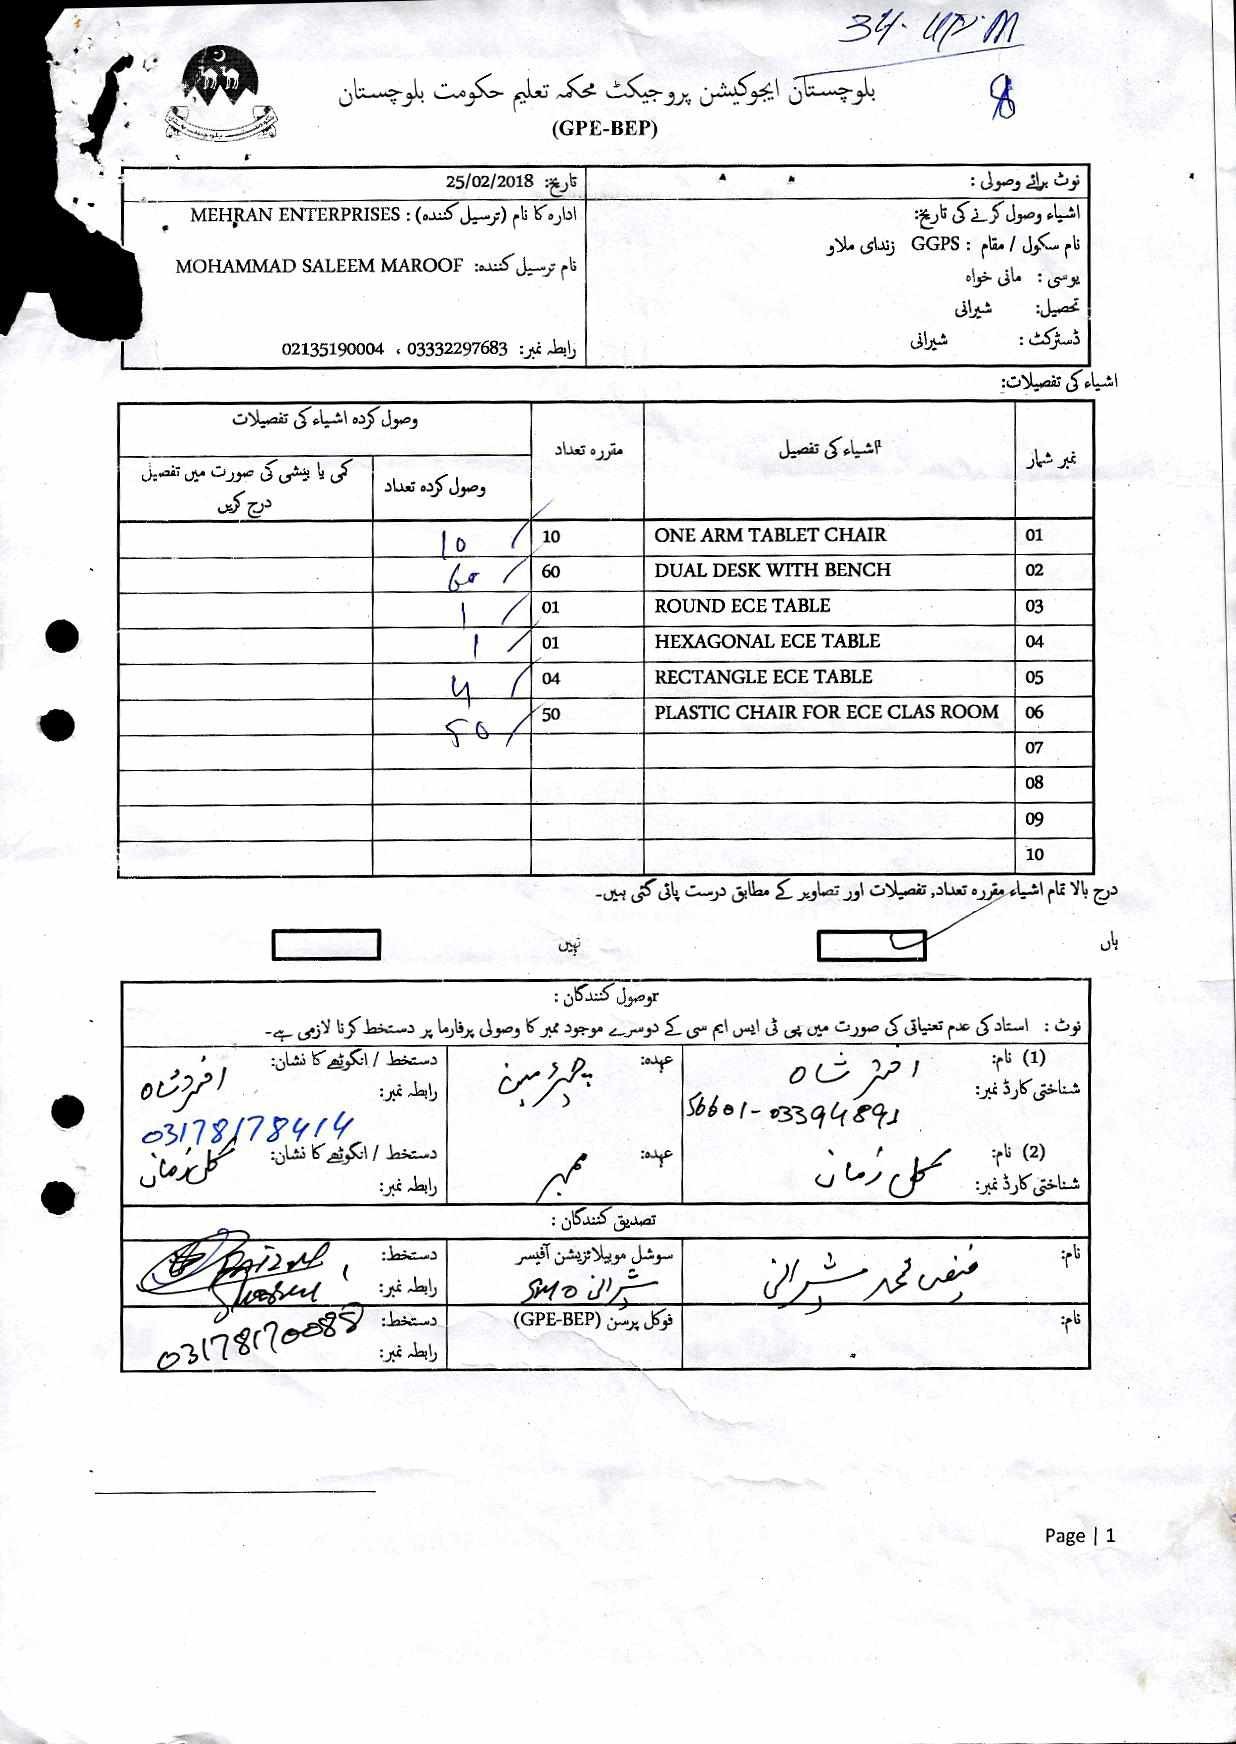 بلوچستان ایجوکیشن پروجیکٹ محکمہ تعلیم حکومت بلوچستان
(GPE-BEP)
8
نوٹ برائے وصولی :
اشیاء وصول کرنے کی تاریخ:
نام سکول / مقام : GGPS زندای ملاو
یوسی : مانی خواہ
تحصیل: شیرانی
ڈسٹرکٹ : شیرانی
تاریخ: 25/02/2018
ادارہ کا نام (ترسیل کنندہ) : MEHRAN ENTERPRISES
نام ترسیل کنندہ: MOHAMMAD SALEEM MAROOF
رابطہ نمبر: 03332297683 ، 02135190004
اشیاء کی تفصیلات:
نمبر شمار اشیاء کی تفصیل مقررہ تعداد وصول کردہ اشیاء کی تفصیلات
وصول کردہ تعداد کمی یا بیشی کی صورت میں تفصیل درج کریں
01 ONE ARM TABLET CHAIR 10 10
02 DUAL DESK WITH BENCH 60 60
03 ROUND ECE TABLE 01 1
04 HEXAGONAL ECE TABLE 01 1
05 RECTANGLE ECE TABLE 04 4
06 PLASTIC CHAIR FOR ECE CLAS ROOM 50 50
07
08
09
10
درج بالا تمام اشیاء مقررہ تعداد, تفصیلات اور تصاویر کے مطابق درست پائی گئی ہیں۔
ہاں نہیں
وصول کنندگان :
نوٹ : استاد کی عدم تعنیاتی کی صورت میں پی ٹی ایس ایم سی کے دوسرے موجود ممبر کا وصولی پرفارما پر دستخط کرنا لازمی ہے۔
(1) نام: اختر شاہ عہدہ: چیئرمین دستخط / انگوٹھے کا نشان:
شناختی کارڈ نمبر: 56601-03394891 رابطہ نمبر: 03178178414
(2) نام: گل زمان عہدہ: ممبر دستخط / انگوٹھے کا نشان: گل زمان
شناختی کارڈ نمبر: رابطہ نمبر:
تصدیق کنندگان :
نام: فیض محمد شیرانی سوشل موبیلائزیشن آفیسر دستخط:
SMO شیرانی رابطہ نمبر:
نام: فوکل پرسن (GPE-BEP) دستخط:
رابطہ نمبر: 03178170088
Page | 1